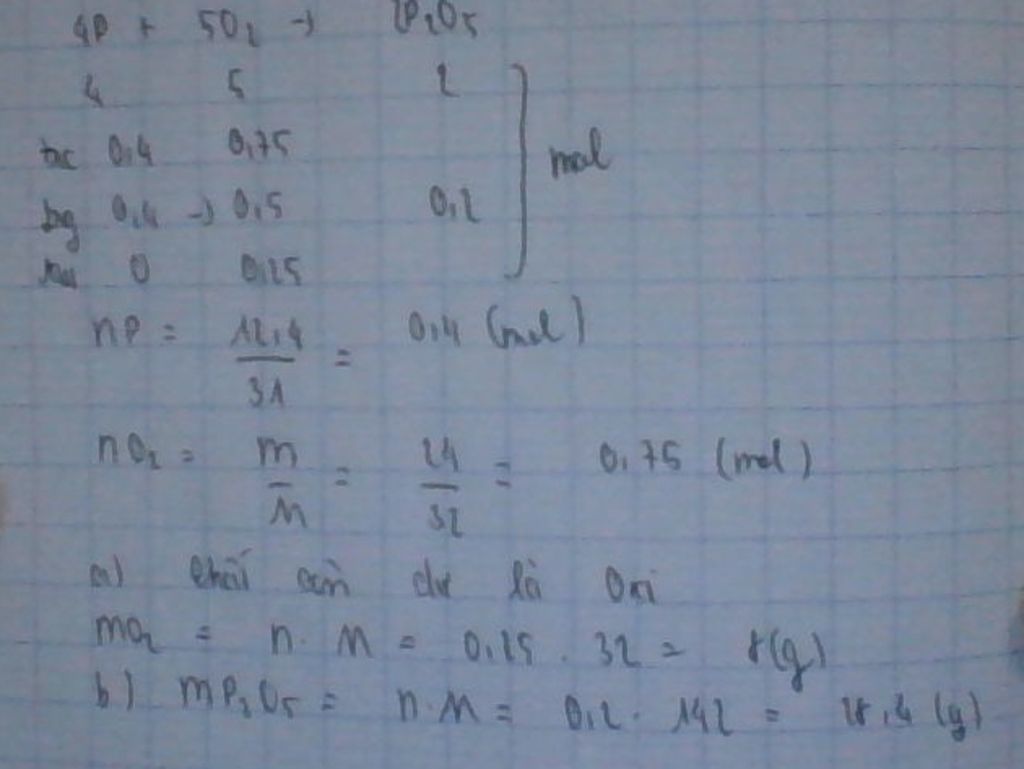 4P + 5O₂ → 2P₂O₅
4 5 2
tc 0,4 0,75
pg 0,4 → 0,5 0,2 mol
sau 0 0,25
nP = 12,4/31 = 0,4 (mol)
nO₂ = m/M = 24/32 = 0,75 (mol)
a) chất còn dư là Oxi
mO₂ = n.M = 0,25 . 32 = 8(g)
b) mP₂O₅ = n.M = 0,2 . 142 = 28,4 (g)